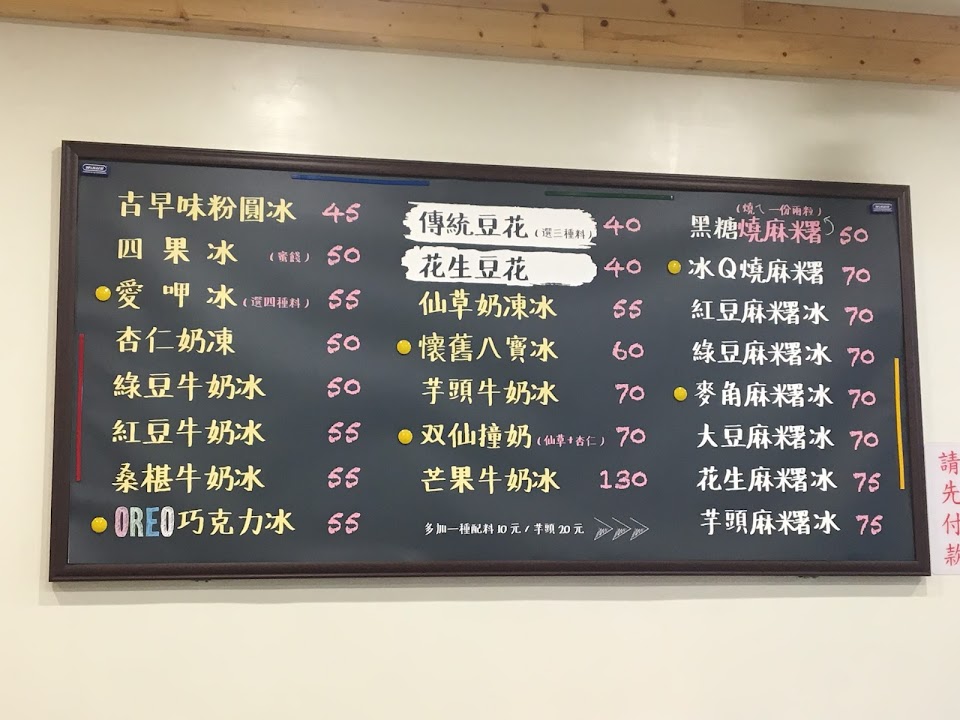 古早味粉圓冰 45
四果冰 (蜜餞) 50
愛呷冰 (選四種料) 55
杏仁奶凍 50
綠豆牛奶冰 50
紅豆牛奶冰 55
桑椹牛奶冰 55
OREO巧克力冰 55
傳統豆花 (選三種料) 40
花生豆花 40
仙草奶凍冰 55
懷舊八寶冰 60
芋頭牛奶冰 70
双仙撞奶 (仙草+杏仁) 70
芒果牛奶冰 130
多加一種配料10元 / 芋頭20元
(燒ㄟ一份兩粒)
黑糖燒麻糬 50
冰Q燒麻糬 70
紅豆麻糬冰 70
綠豆麻糬冰 70
麥角麻糬冰 70
大豆麻糬冰 70
花生麻糬冰 75
芋頭麻糬冰 75
請先付款